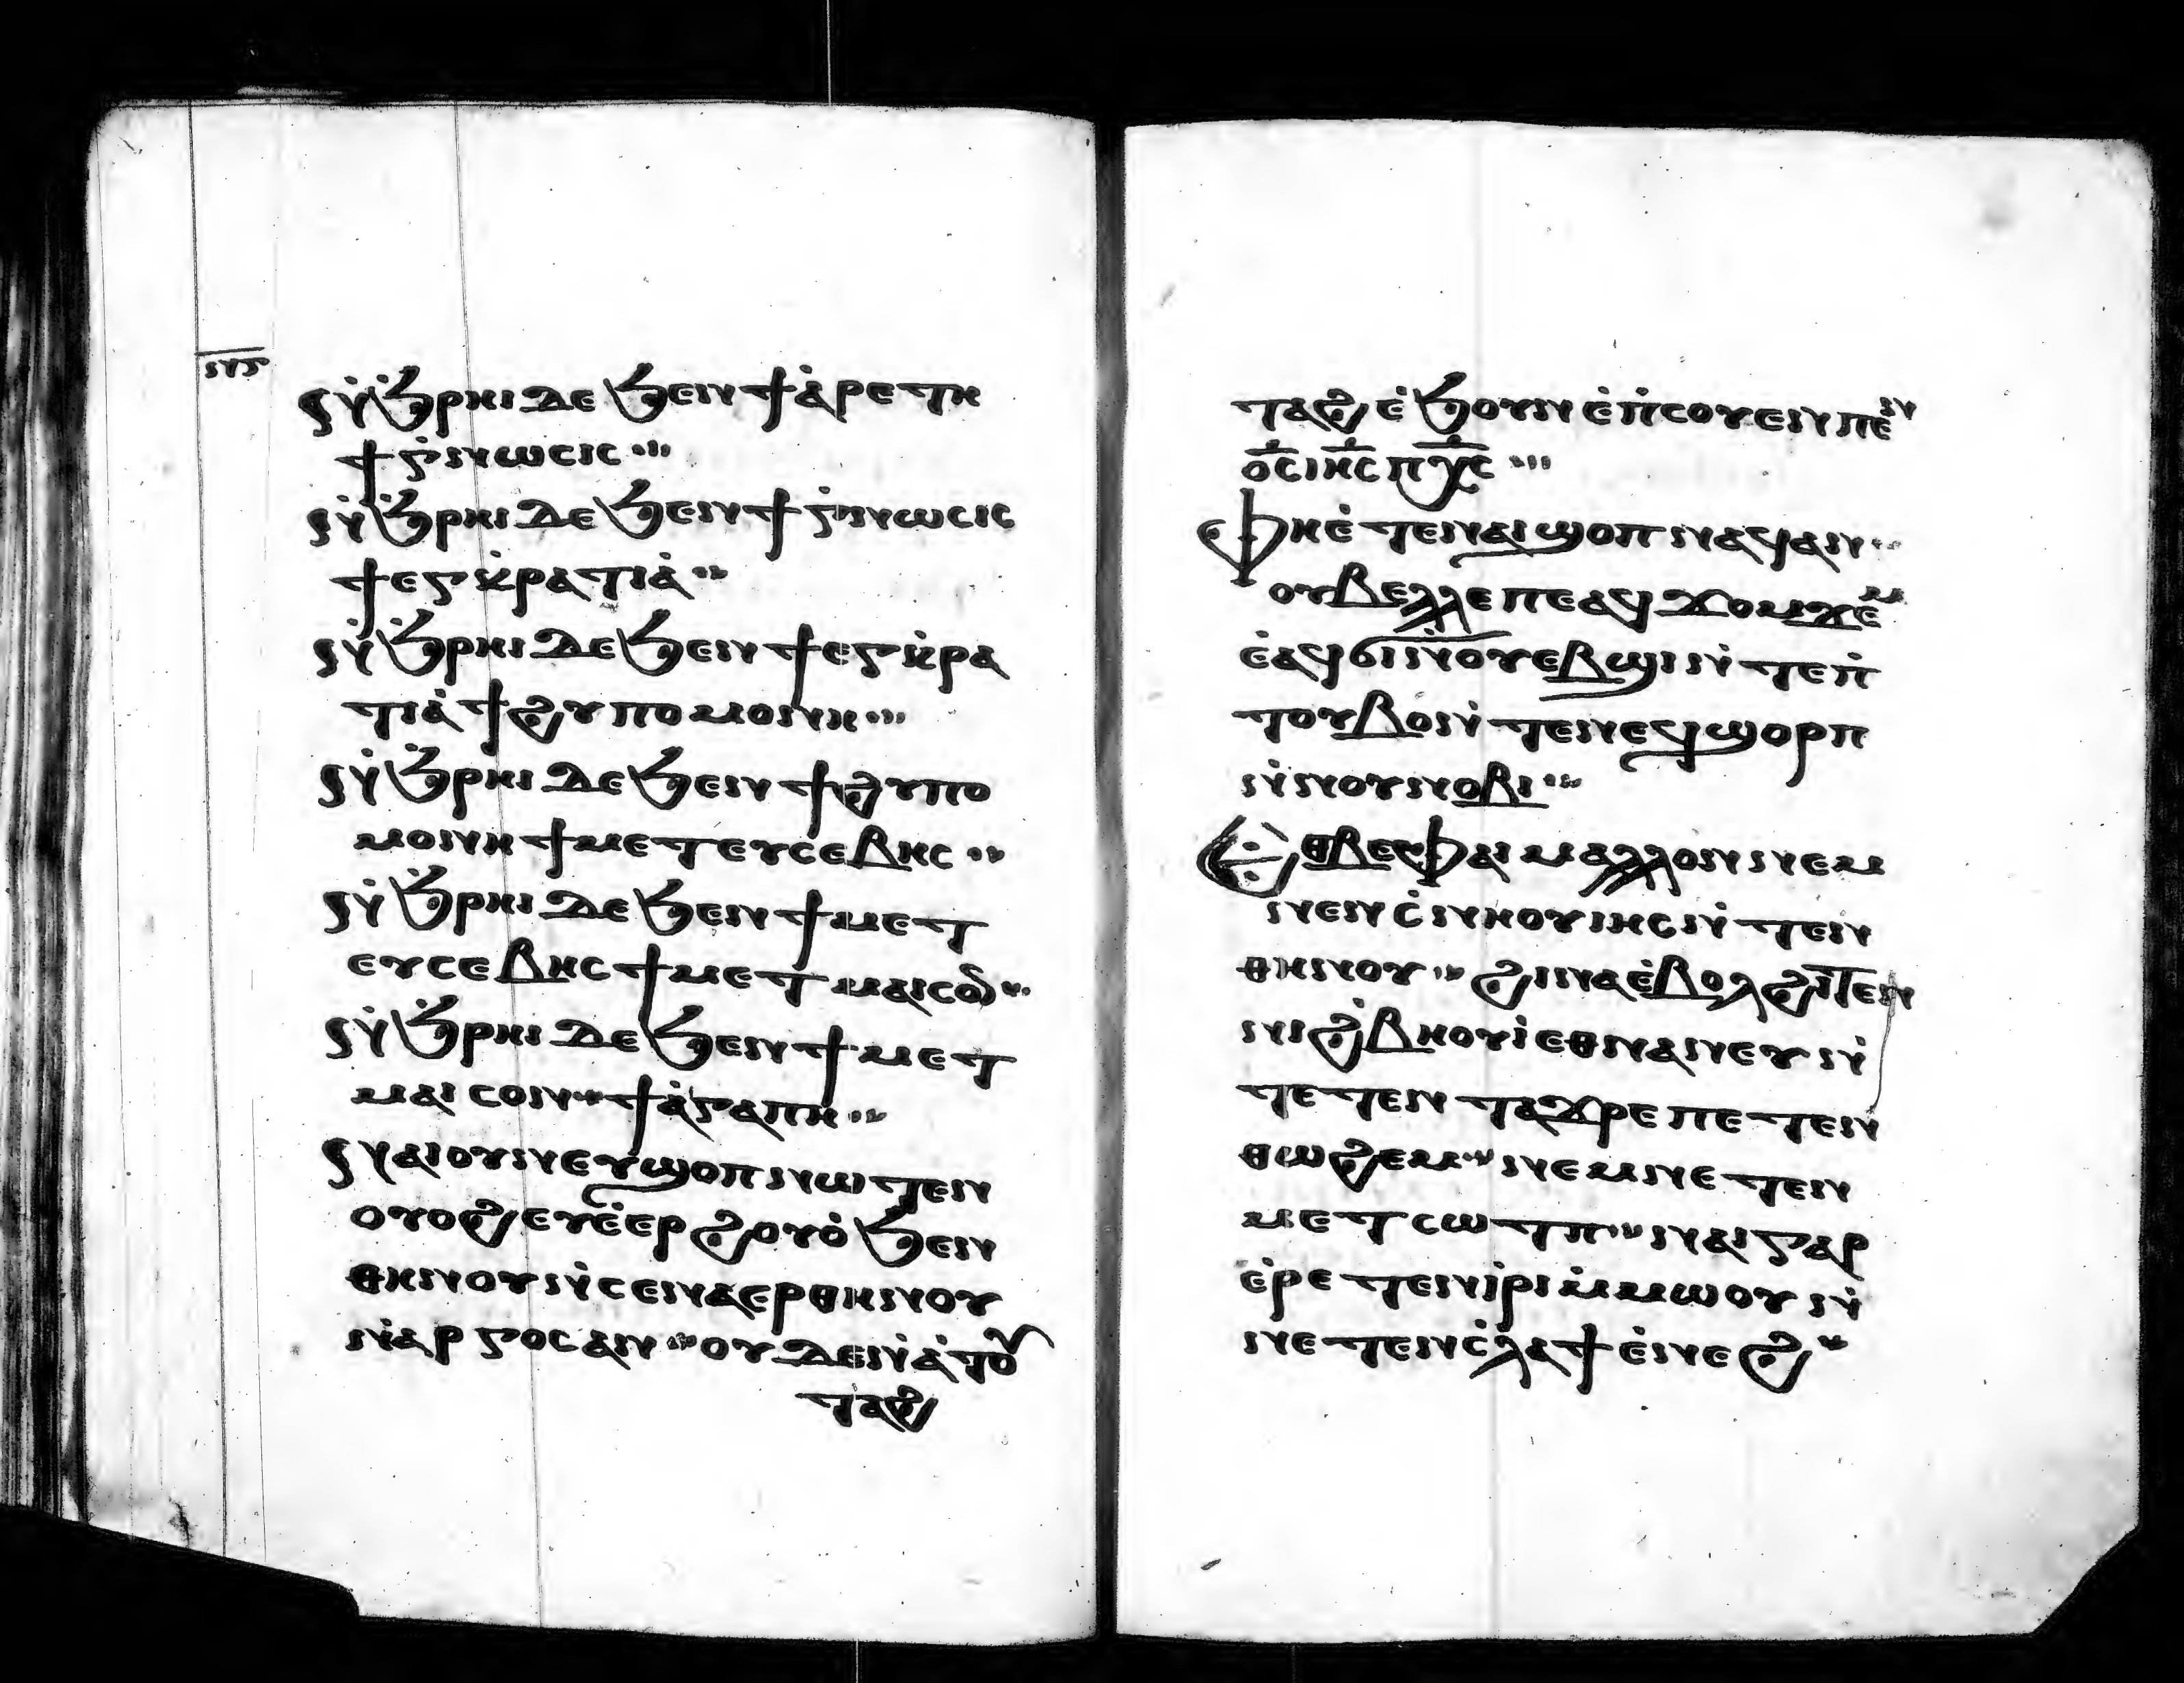 ⲛⲅ
ⲛ̇ϧ̇ⲣⲏⲓ ⲇⲉ ϧⲉⲛ ϯⲁ̇ⲣⲉⲧⲏ
ϯⲅ̇ⲛⲱⲥⲓⲥ
ⲛ̇ϧ̇ⲣⲏⲓ ⲇⲉ ϧⲉⲛ ϯⲅ̇ⲛⲱⲥⲓⲥ
ϯⲉⲅⲕ̇ⲣⲁⲧⲓⲁ̇
ⲛ̇ϧ̇ⲣⲏⲓ ⲇⲉ ϧⲉⲛ ϯⲉⲅⲕ̇ⲣⲁ
ⲧⲓⲁ̇ ϯϩⲩⲡⲟⲙⲟⲛⲏ
ⲛ̇ϧ̇ⲣⲏⲓ ⲇⲉ ϧⲉⲛ ϯϩⲩⲡⲟ
ⲙⲟⲛⲏ ϯⲙⲉⲧⲉⲩⲥⲉⲃⲏⲥ
ⲛ̇ϧ̇ⲣⲏⲓ ⲇⲉ ϧⲉⲛ ϯⲙⲉⲧ
ⲉⲩⲥⲉⲃⲏⲥ ϯⲙⲉⲧⲙⲁⲓⲥⲟⲛ
ⲛ̇ϧ̇ⲣⲏⲓ ⲇⲉ ϧⲉⲛ ϯⲙⲉⲧ
ⲙⲁⲓⲥⲟⲛ ϯⲁ̇ⲅⲁⲡⲏ
ⲛⲁⲓ ⲟⲩⲛ ⲉⲩϣⲟⲡ ⲛⲱⲧⲉⲛ
ⲟⲩⲟϩ ⲉⲩⲉ̇ⲉⲣϩⲟⲩⲟ̇ ϧⲉⲛ
ⲑⲏⲛⲟⲩ ⲛ̇ⲥⲉⲛⲁⲉⲣ ⲑⲏⲛⲟⲩ
ⲛ̇ⲁⲣⲅⲟⲥ ⲁⲛ ⲟⲩⲇⲉ ⲛ̇ⲁ̇ⲧⲟⲩ
ⲧⲁϩ
ⲧⲁϩ ⲉ̇ϧⲟⲩⲛ ⲉ̇ⲡ̇ⲥⲟⲩⲉⲛ ⲡⲉⲛ
ⲟ̅ⲥ̅ ⲓⲏ̅ⲥ̅ ⲡⲭ̅ⲥ̅
ⲫⲏ ⲉ̇ⲧⲉ ⲛⲁⲓ ϣⲟⲡ ⲛⲁϥ ⲁⲛ
ⲟⲩⲃⲉⲗⲗⲉ ⲡⲉ ⲁϥϫⲟⲙϫⲉⲙ
ⲉ̇ⲁϥϭⲓ ⲛ̇ⲟⲩⲉⲃϣⲓ ⲛ̇ⲧⲉ ⲡ̇
ⲧⲟⲩⲃⲟ ⲛ̇ⲧⲉ ⲛⲉϥϣⲟⲣⲡ
ⲛ̇ⲛⲟⲩⲛⲟⲃⲓ
ⲉⲑⲃⲉ ⲫⲁⲓ ⲙⲁⲗⲗⲟⲛ ⲛⲉⲙ
ⲛⲉⲛⲥ̇ⲛⲏⲟⲩ ⲓⲏⲥ ⲛ̇ⲧⲉⲛ
ⲑⲏⲛⲟⲩ ϩⲓⲛⲁ ⲉ̇ⲃⲟⲗ ϩⲓⲧⲉⲛ
ⲛⲓϩ̇ⲃⲏⲟⲩⲓ̇ ⲉⲑⲛⲁⲛⲉⲩ ⲛ̇
ⲧⲉⲧⲉⲛ ⲧⲁϫⲣⲉ ⲡⲉⲧⲉⲛ
ⲑⲱϩⲉⲙ ⲛⲉⲙ ⲛⲉⲧⲉⲛ
ⲙⲉⲧⲥⲱⲧⲡ ⲛⲁⲓ ⲅⲁⲣ
ⲉ̇ⲣⲉⲧⲉⲛⲓ̇ⲣⲓ ⲙ̇ⲙⲱⲟⲩ ⲛ̇
ⲛⲉⲧⲉⲛⲥ̇ⲗⲁϯ ⲉ̇ⲛⲉϩ